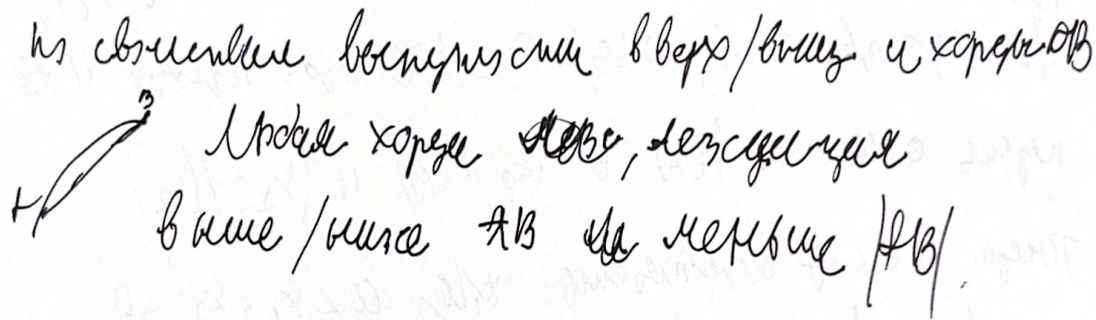 Из выпуклости вверх/вниз и хорды AB
B Любая хорда, лежащая
A выше/ниже AB меньше |AB|.